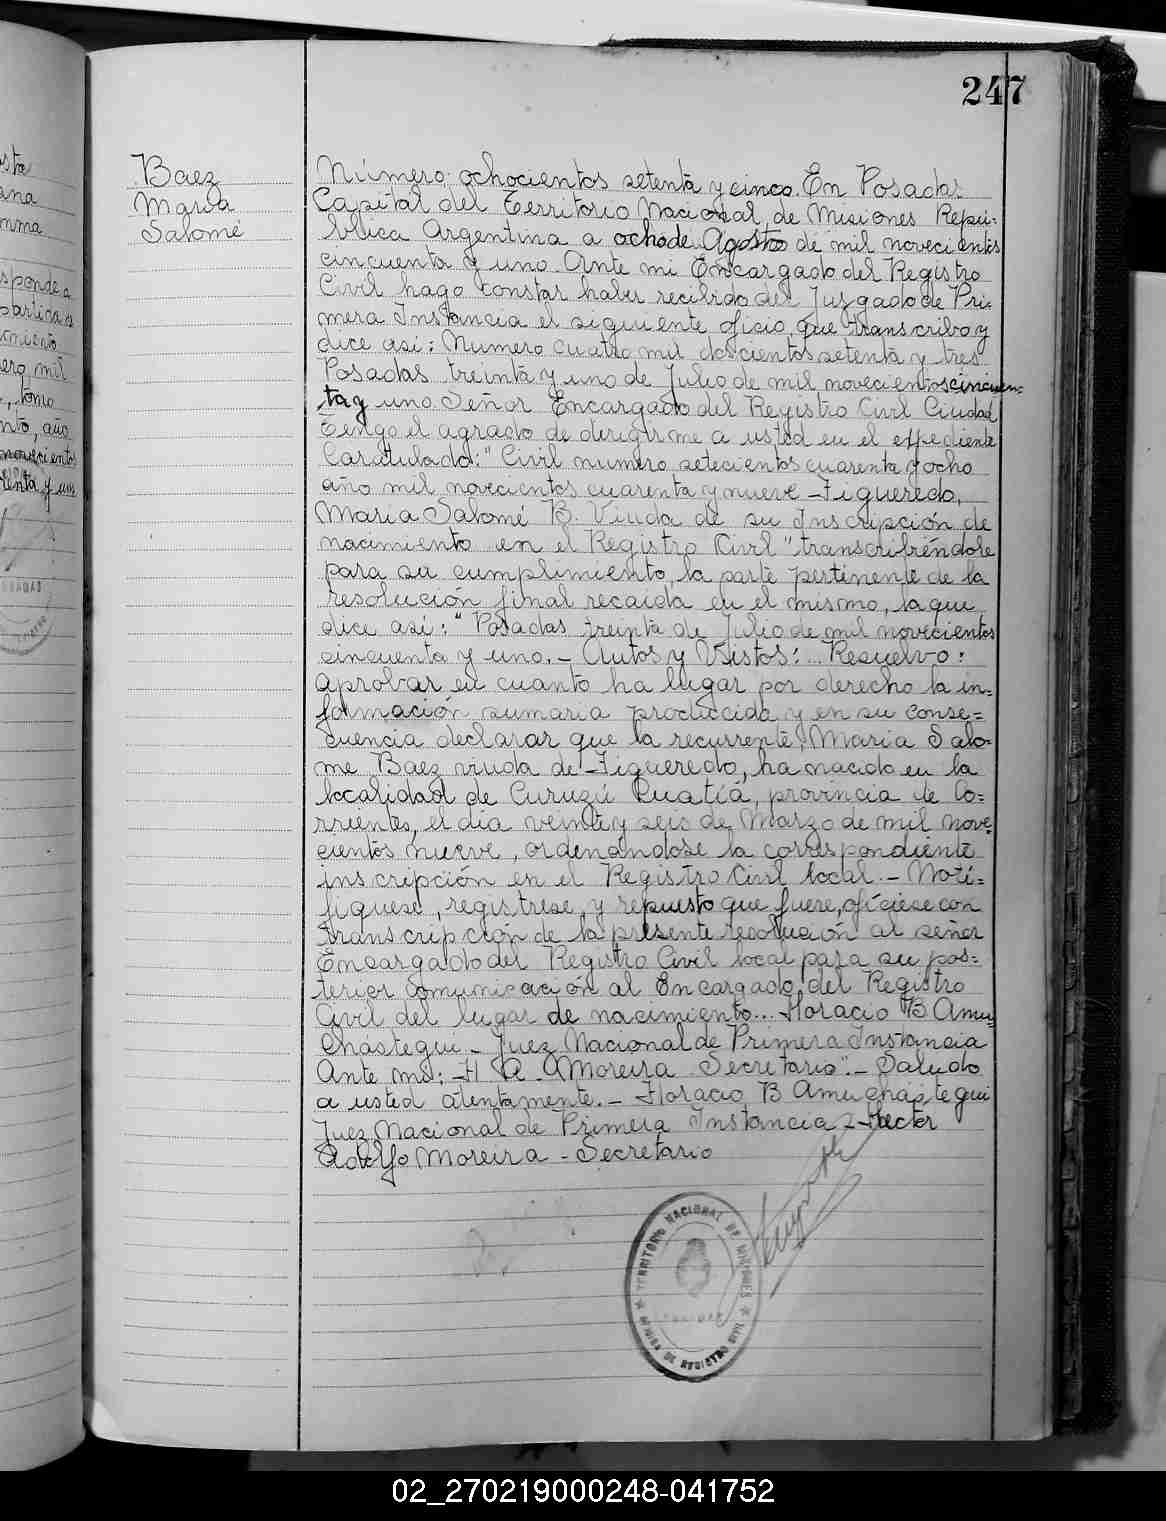 247
Baez
Maria
Salomé
Número ochocientos setenta y cinco. En Posadas
Capital del Territorio Nacional de Misiones Repú-
blica Argentina a ocho de Agosto de mil novecientos
cincuenta y uno. Ante mi Encargado del Registro
Civil hago constar haber recibido del Juzgado de Pri-
mera Instancia el siguiente oficio, que transcribo y
dice asi: Numero cuatro mil doscientos setenta y tres
Posadas treinta y uno de Julio de mil novecientos cincuen-
ta y uno. Señor Encargado del Registro Civil Ciudad
Tengo el agrado de dirigirme a usted en el expediente
Caratulado: "Civil numero setecientos cuarenta y ocho
año mil novecientos cuarenta y nueve - Figueredo,
Maria Salomé B. Viuda de su Inscripción de
nacimiento en el Registro Civil" transcribiéndole
para su cumplimiento, la parte pertinente de la
resolución final recaida en el mismo, la que
dice asi: "Posadas, treinta de Julio de mil novecientos
cincuenta y uno.- Autos y Vistos:... Resuelvo:
aprobar en cuanto ha lugar por derecho la in-
formación sumaria producida y en su conse-
cuencia declarar que la recurrente, Maria Salo-
me Baez viuda de Figueredo, ha nacido en la
localidad de Curuzú Cuatiá, provincia de Co-
rrientes, el dia veinte y seis de Marzo de mil nove-
cientos nueve, ordenándose la correspondiente
inscripción en el Registro Civil local.- Noti-
fiquese, registrese, y repuesto que fuere, ofíciese con
transcripción de la presente resolución al señor
Encargado del Registro Civil local para su pos-
terior comunicación al Encargado del Registro
Civil del lugar de nacimiento... Horacio B Amu-
chástegui - Juez Nacional de Primera Instancia
Ante mi: H. A. Moreira Secretario".- Saludo
a usted atentamente.- Horacio B Amuchástegui
Juez Nacional de Primera Instancia - Hector
Adolfo Moreira - Secretario
TERRITORIO NACIONAL DE MISIONES
OFICINA DE REGISTRO CIVIL
POSADAS
02_270219000248-041752